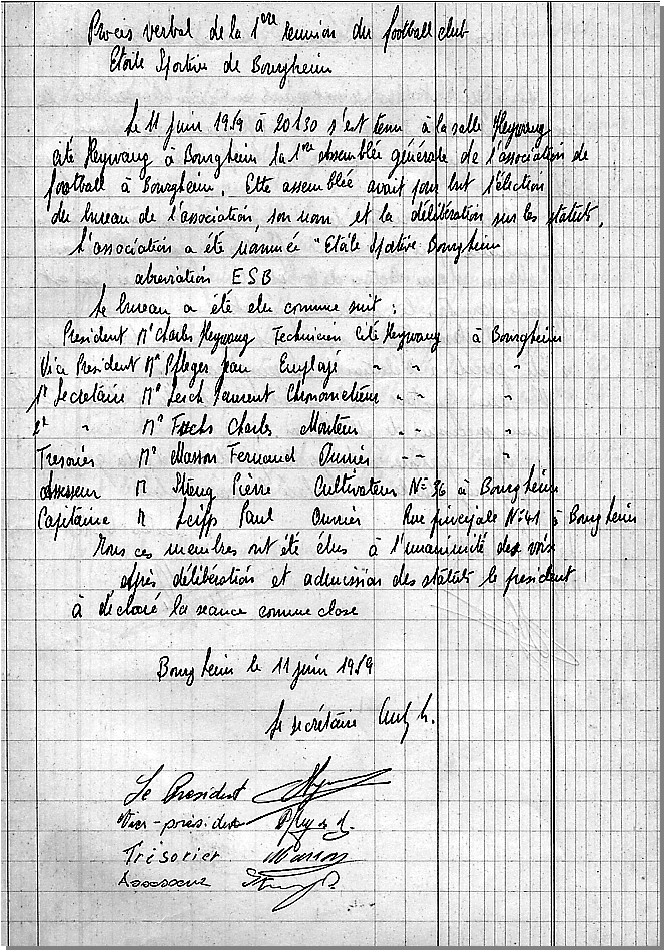 Procès verbal de la 1ère reunion du football club
Etoile Sportive de Bourgheim
Le 11 juin 1959 à 20h30 s'est tenu à la salle Heywang
cité Heywang à Bourgheim la 1ère assemblée générale de l'association de
football à Bourgheim. Cette assemblée avait pour but l'élection
du bureau de l'association, son nom et la délibération sur les statuts.
L'association a été nommée "Etoile Sportive Bourgheim
abreviation ESB
Le bureau a été élu comme suit :
President Mr Charles Heywang Technicien cité Heywang à Bourgheim
Vice President Mr Pfleger Jean Employé " " "
1er Secretaire Mr Lerch Laurent Chronometreur " " "
2e " Mr Fuchs Charles Monteur " " "
Tresorier Mr Masson Fernand Ouvrier " " "
Assesseur M Steng Pierre Cultivateur N° 36 à Bourgheim
Capitaine M Seiff Paul Ouvrier Rue principale N° 41 à Bourgheim
Tous ces membres ont été élus à l'unanimité des voix
Après délibération et admission des statuts le president
à déclaré la seance comme close
Bourgheim le 11 juin 1959
Le secrétaire
Le President
Vice-président
Trésorier Masson
Assesseur